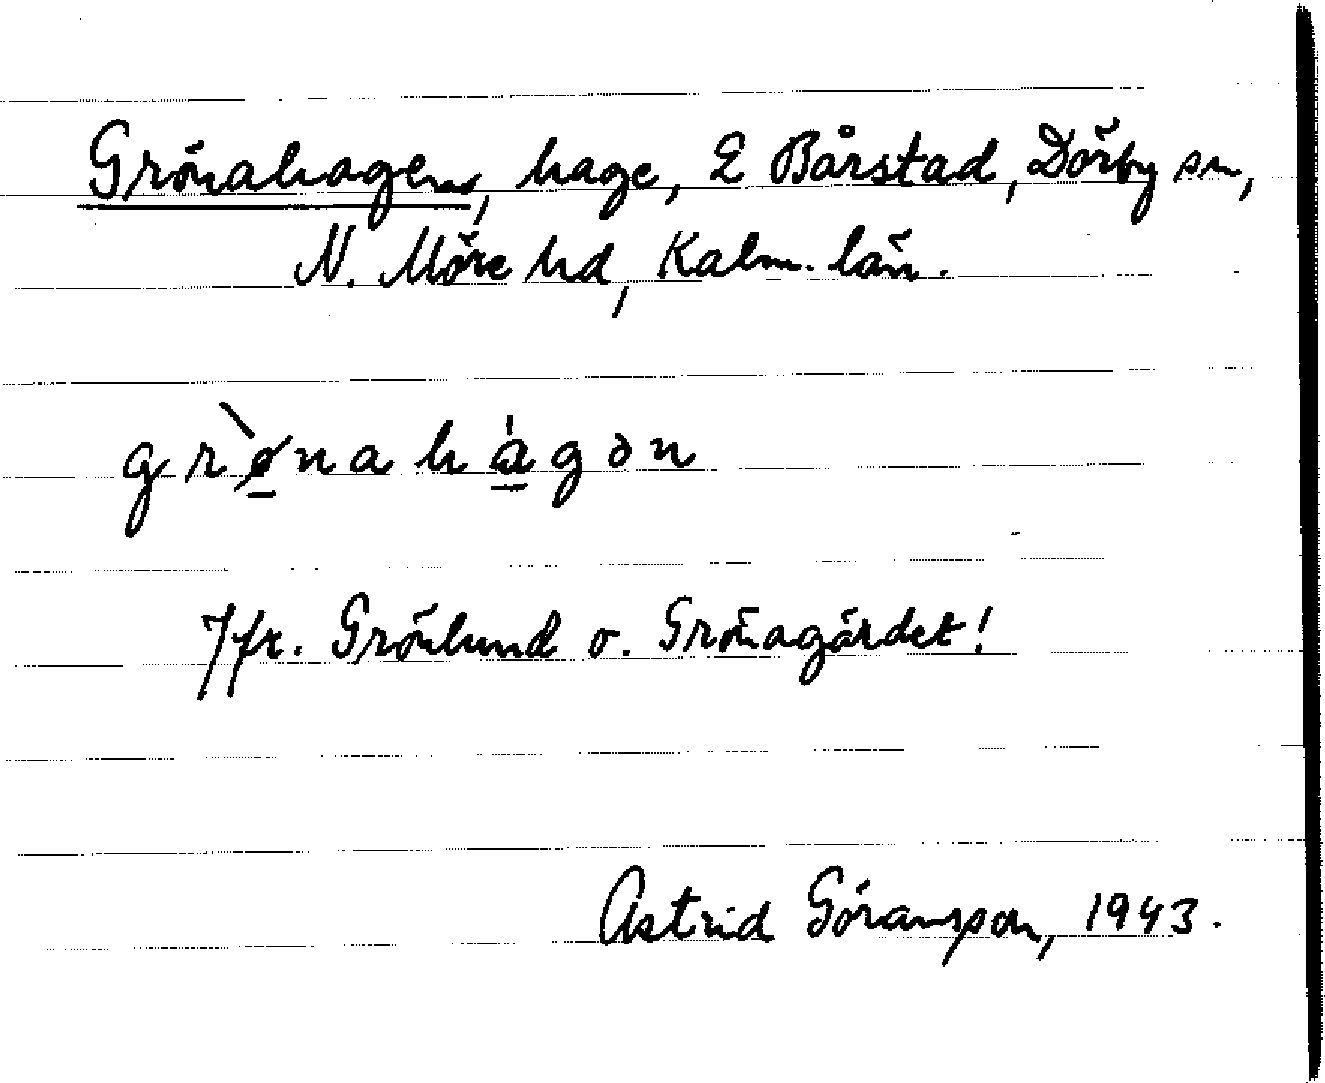 Grönahagen, hage, 2 Bårstad, Dörby sn,
N. Möre hd, Kalm. län.
grø̀nahágən
Jfr. Grönlund o. Grönagärdet!
Astrid Göransson, 1943.